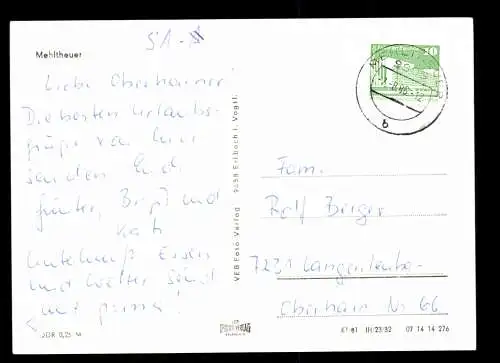 Mehltheuer
51-
Liebe Oberhainer!
Die besten Urlaubs-
grüße von hier
senden Euch
Günter, Birgit und
Kati
Unterkunft Essen
und Wetter sind
prima!
DDR 0,25 M
VEB Foto-Verlag 9658 Erlbach i. Vogtl.
Fam.
Rolf Berger
7231 Langenleuba-
Oberhain Nr 66
FOTO-VERLAG
ERLBACH
III/23/32 07 14 14 276